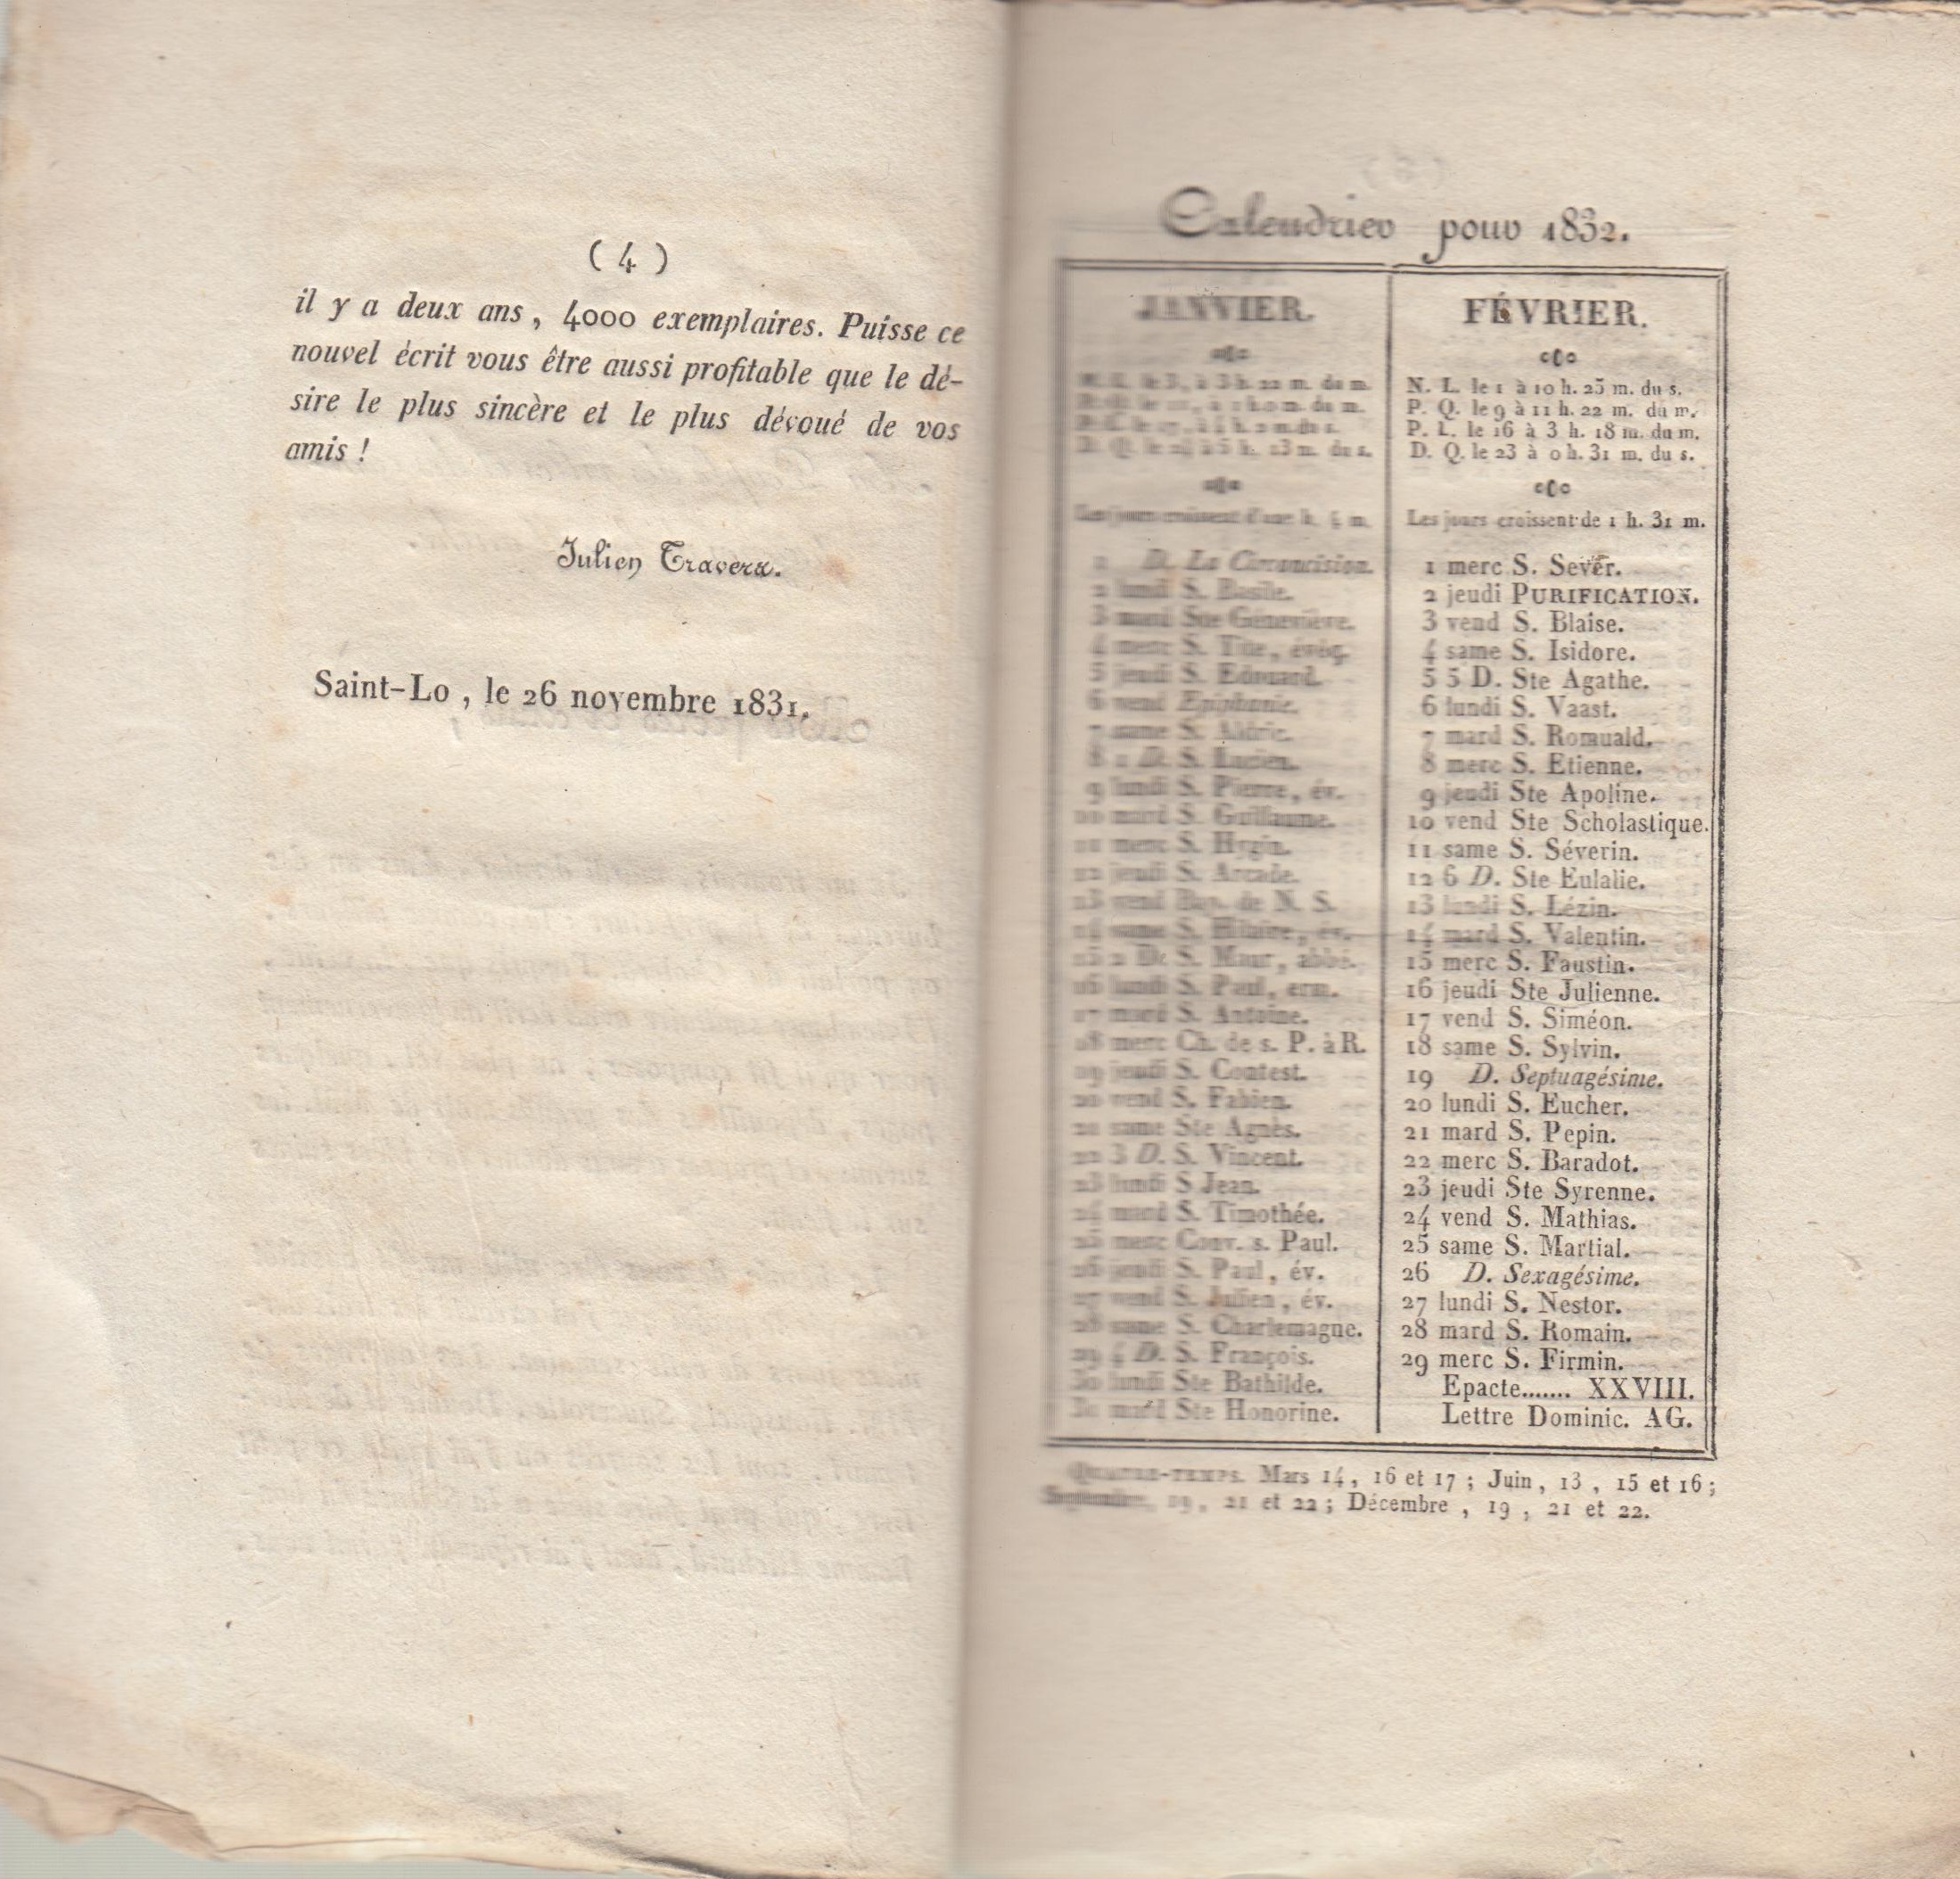 ( 4 )
il y a deux ans , 4000 exemplaires. Puisse ce
nouvel écrit vous être aussi profitable que le dé-
sire le plus sincère et le plus dévoué de vos
amis !
Julien Travers.
Saint-Lo , le 26 novembre 1831.
Calendrier pour 1832.
JANVIER.
le 3, à 3 h. 22 m. du m.
D. Q. le 24 à 5 h. 13 m. du s.
Les jours croissent d'une h. m.
1 D. La Circoncision.
2 lundi S. Basile.
3 mard Ste Geneviève.
4 merc S. Tite, évêq.
5 jeudi S. Edouard.
6 vend Epiphanie.
7 same S. Aldric.
8 1 D. S. Lucien.
9 lundi S. Pierre, év.
10 mard S. Guillaume.
11 merc S. Hygin.
12 jeudi S. Arcade.
13 vend Bap. de N. S.
14 same S. Hilaire, év.
15 2 D. S. Maur, abbé.
16 lundi S. Paul, erm.
17 mard S. Antoine.
18 merc Ch. de s. P. à R.
19 jeudi S. Contest.
20 vend S. Fabien.
21 same Ste Agnès.
22 3 D. S. Vincent.
23 lundi S Jean.
24 mard S. Timothée.
25 merc Conv. s. Paul.
26 jeudi S. Paul, év.
27 vend S. Julien, év.
28 same S. Charlemagne.
29 4 D. S. François.
30 lundi Ste Bathilde.
mard Ste Honorine.
FÉVRIER.
N. L. le 1 à 10 h. 25 m. du s.
P. Q. le 9 à 11 h. 22 m. du m.
P. L. le 16 à 3 h. 18 m. du m.
D. Q. le 23 à 0 h. 31 m. du s.
Les jours croissent de 1 h. 31 m.
1 merc S. Sever.
2 jeudi PURIFICATION.
3 vend S. Blaise.
4 same S. Isidore.
5 5 D. Ste Agathe.
6 lundi S. Vaast.
7 mard S. Romuald.
8 merc S. Etienne.
9 jeudi Ste Apoline.
10 vend Ste Scholastique.
11 same S. Séverin.
12 6 D. Ste Eulalie.
13 lundi S. Lézin.
14 mard S. Valentin.
15 merc S. Faustin.
16 jeudi Ste Julienne.
17 vend S. Siméon.
18 same S. Sylvin.
19 D. Septuagésime.
20 lundi S. Eucher.
21 mard S. Pepin.
22 merc S. Baradot.
23 jeudi Ste Syrenne.
24 vend S. Mathias.
25 same S. Martial.
26 D. Sexagésime.
27 lundi S. Nestor.
28 mard S. Romain.
29 merc S. Firmin.
Epacte....... XXVIII.
Lettre Dominic. AG.
QUATRE-TEMPS. Mars 14, 16 et 17 ; Juin , 13 , 15 et 16 ;
Septembre, 19, 21 et 22 ; Décembre , 19 , 21 et 22.